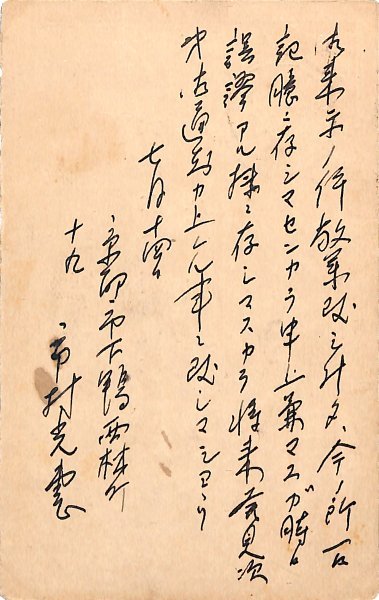 御来示ノ件敬承致シ升タ、今ノ所一日
記臆ニ存シマセンカラ申上兼マスガ時日
誤謬アル様ニ存シマスカラ将来発見次
第御通知カ上ル事ニ致シマショウ
七月十四日
京都市下鴨西林町
十九
市村光恵